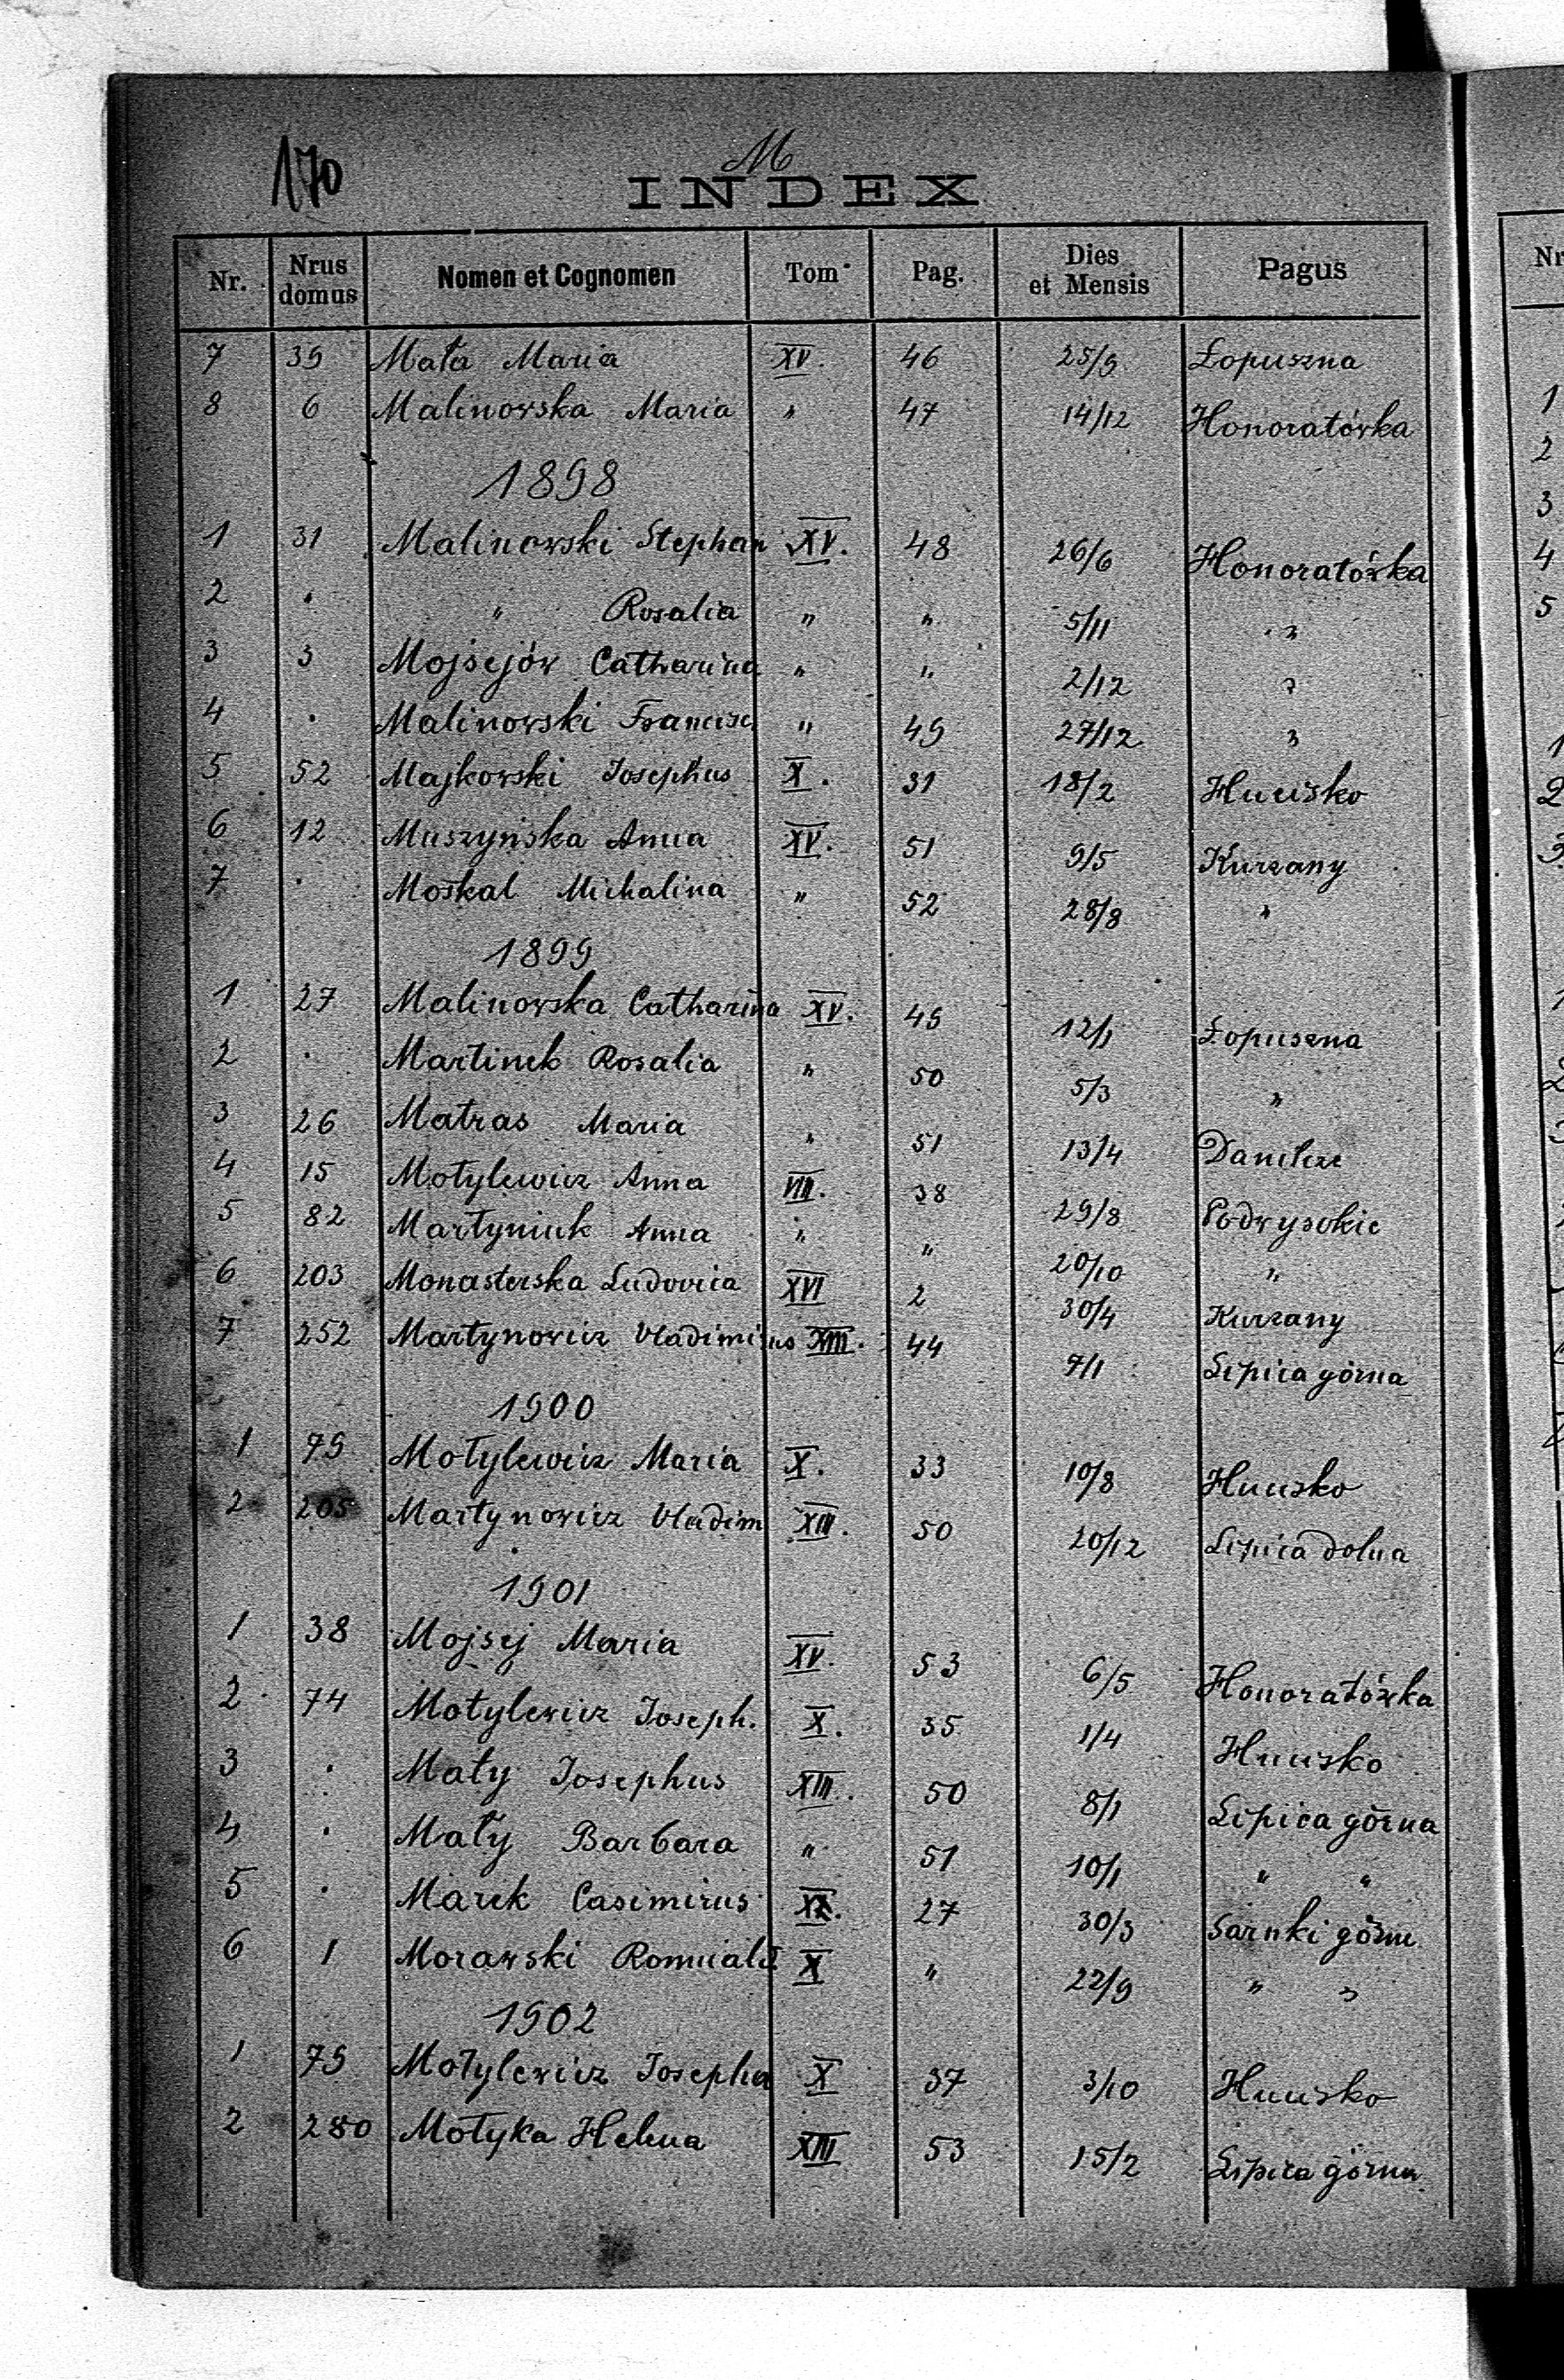 170
M
INDEX
Nr. Nrus domus Nomen et Cognomen Tom Pag. Dies et Mensis Pagus
7 39 Mała Maria XV. 46 25/9 Łopuszna
8 6 Malinowska Maria " 47 14/12 Honoratówka
1898
1 31 Malinowski Stephan XV. 48 26/6 Honoratówka
2 " " Rosalia " " 5/11 "
3 3 Mojsejów Catharina " " 2/12 "
4 . Malinowski Francisc " 49 27/12 "
5 52 Majkowski Josephus X. 31 18/2 Hucisko
6 12 Muszyńska Anna XV. 51 9/5 Kurzany
7 . Moskal Michalina " 52 28/8 "
1899
1 27 Malinowska Catharina XV. 49 12/1 Łopuszna
2 . Martinek Rosalia " 50 5/3 "
3 26 Matras Maria " 51 13/4 Danilcze
4 15 Motylewicz Anna VIII. 38 29/8 Podwysokie
5 82 Martyniuk Anna " " 20/10 "
6 203 Monasterska Ludovica XVI 2 30/4 Kurzany
7 252 Martynowicz Vladimirus XIII. 44 7/1 Lipica górna
1900
1 79 Motylewicz Maria X. 33 10/8 Hucisko
2 205 Martynowicz Vladim XIII. 50 20/12 Lipica dolna
1901
1 38 Mojsej Maria XV. 53 6/5 Honoratówka
2 74 Motylewicz Joseph. X. 35 1/4 Hucisko
3 . Mały Josephus XIII. 50 8/1 Lipica górna
4 . Mały Barbara " 51 10/1 " "
5 . Marek Casimirus 27 30/3 Sarnki górne
6 1 Morawski Romuald X " 22/9 " "
1902
1 79 Motylewicz Josepha X 37 3/10 Hucisko
2 280 Motyka Helena XIII 53 15/2 Lipica górna
Nr
1
2
3
4
5
1
2
3